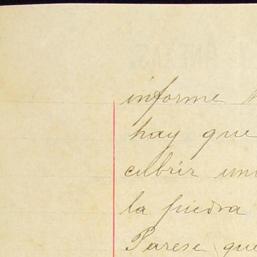 informe
hay que
cubrir un
la piedra
Parese que